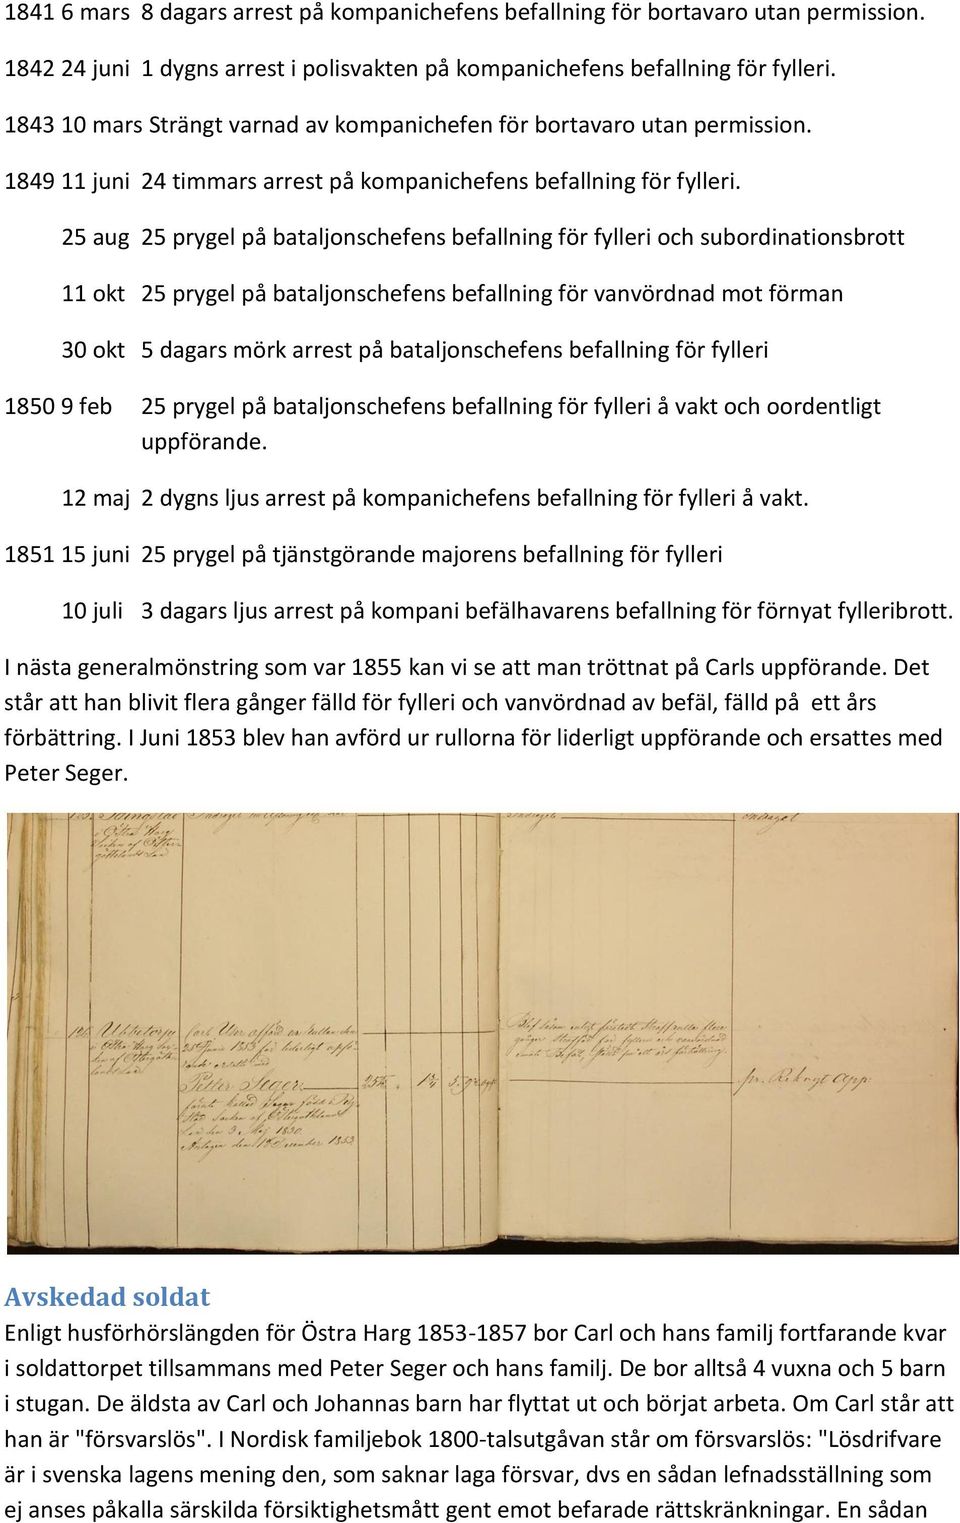 1841 6 mars 8 dagars arrest på kompanichefens befallning för bortavaro utan permission.
1842 24 juni 1 dygns arrest i polisvakten på kompanichefens befallning för fylleri.
1843 10 mars Strängt varnad av kompanichefen för bortavaro utan permission.
1849 11 juni 24 timmars arrest på kompanichefens befallning för fylleri.
25 aug 25 prygel på bataljonschefens befallning för fylleri och subordinationsbrott
11 okt 25 prygel på bataljonschefens befallning för vanvördnad mot förman
30 okt 5 dagars mörk arrest på bataljonschefens befallning för fylleri
1850 9 feb 25 prygel på bataljonschefens befallning för fylleri å vakt och oordentligt
uppförande.
12 maj 2 dygns ljus arrest på kompanichefens befallning för fylleri å vakt.
1851 15 juni 25 prygel på tjänstgörande majorens befallning för fylleri
10 juli 3 dagars ljus arrest på kompani befälhavarens befallning för förnyat fylleribrott.
I nästa generalmönstring som var 1855 kan vi se att man tröttnat på Carls uppförande. Det
står att han blivit flera gånger fälld för fylleri och vanvördnad av befäl, fälld på ett års
förbättring. I Juni 1853 blev han avförd ur rullorna för liderligt uppförande och ersattes med
Peter Seger.
i Östra Harg
Socken af Öster-
götlands Län
Ubbetorp
i Östra Harg Soc-
ken af Östergöt-
lands Län
Carl Um afförd ur Rullan den
25 Junii 1853 för liderligt uppfö-
rande ersatt med
Petter Seger
den 3 Maj 1830.
Antagen den 1 December 1853
Avskedad soldat
Enligt husförhörslängden för Östra Harg 1853-1857 bor Carl och hans familj fortfarande kvar
i soldattorpet tillsammans med Peter Seger och hans familj. De bor alltså 4 vuxna och 5 barn
i stugan. De äldsta av Carl och Johannas barn har flyttat ut och börjat arbeta. Om Carl står att
han är "försvarslös". I Nordisk familjebok 1800-talsutgåvan står om försvarslös: "Lösdrifvare
är i svenska lagens mening den, som saknar laga försvar, dvs en sådan lefnadsställning som
ej anses påkalla särskilda försiktighetsmått gent emot befarade rättskränkningar. En sådan